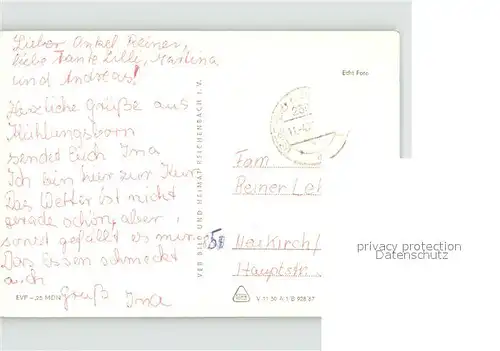 Lieber Onkel Reiner,
liebe Tante Lilli, Martina
und Andreas!
Herzliche Grüße aus
Kühlungsborn
sendet Euch Ina
Ich bin hier zur Kur.
Das Wetter ist nicht
gerade schön, aber
sonst gefällt es mir
Das Essen schmeckt
auch
Gruß Ina
EVP –,25 MDN
VEB BILD UND HEIMAT REICHENBACH i. V.
Echt Foto
Fam
Reiner
Neukirch/
Hauptstr.
V 11 50 A 1/B 928/67
privacy protection
Datenschutz